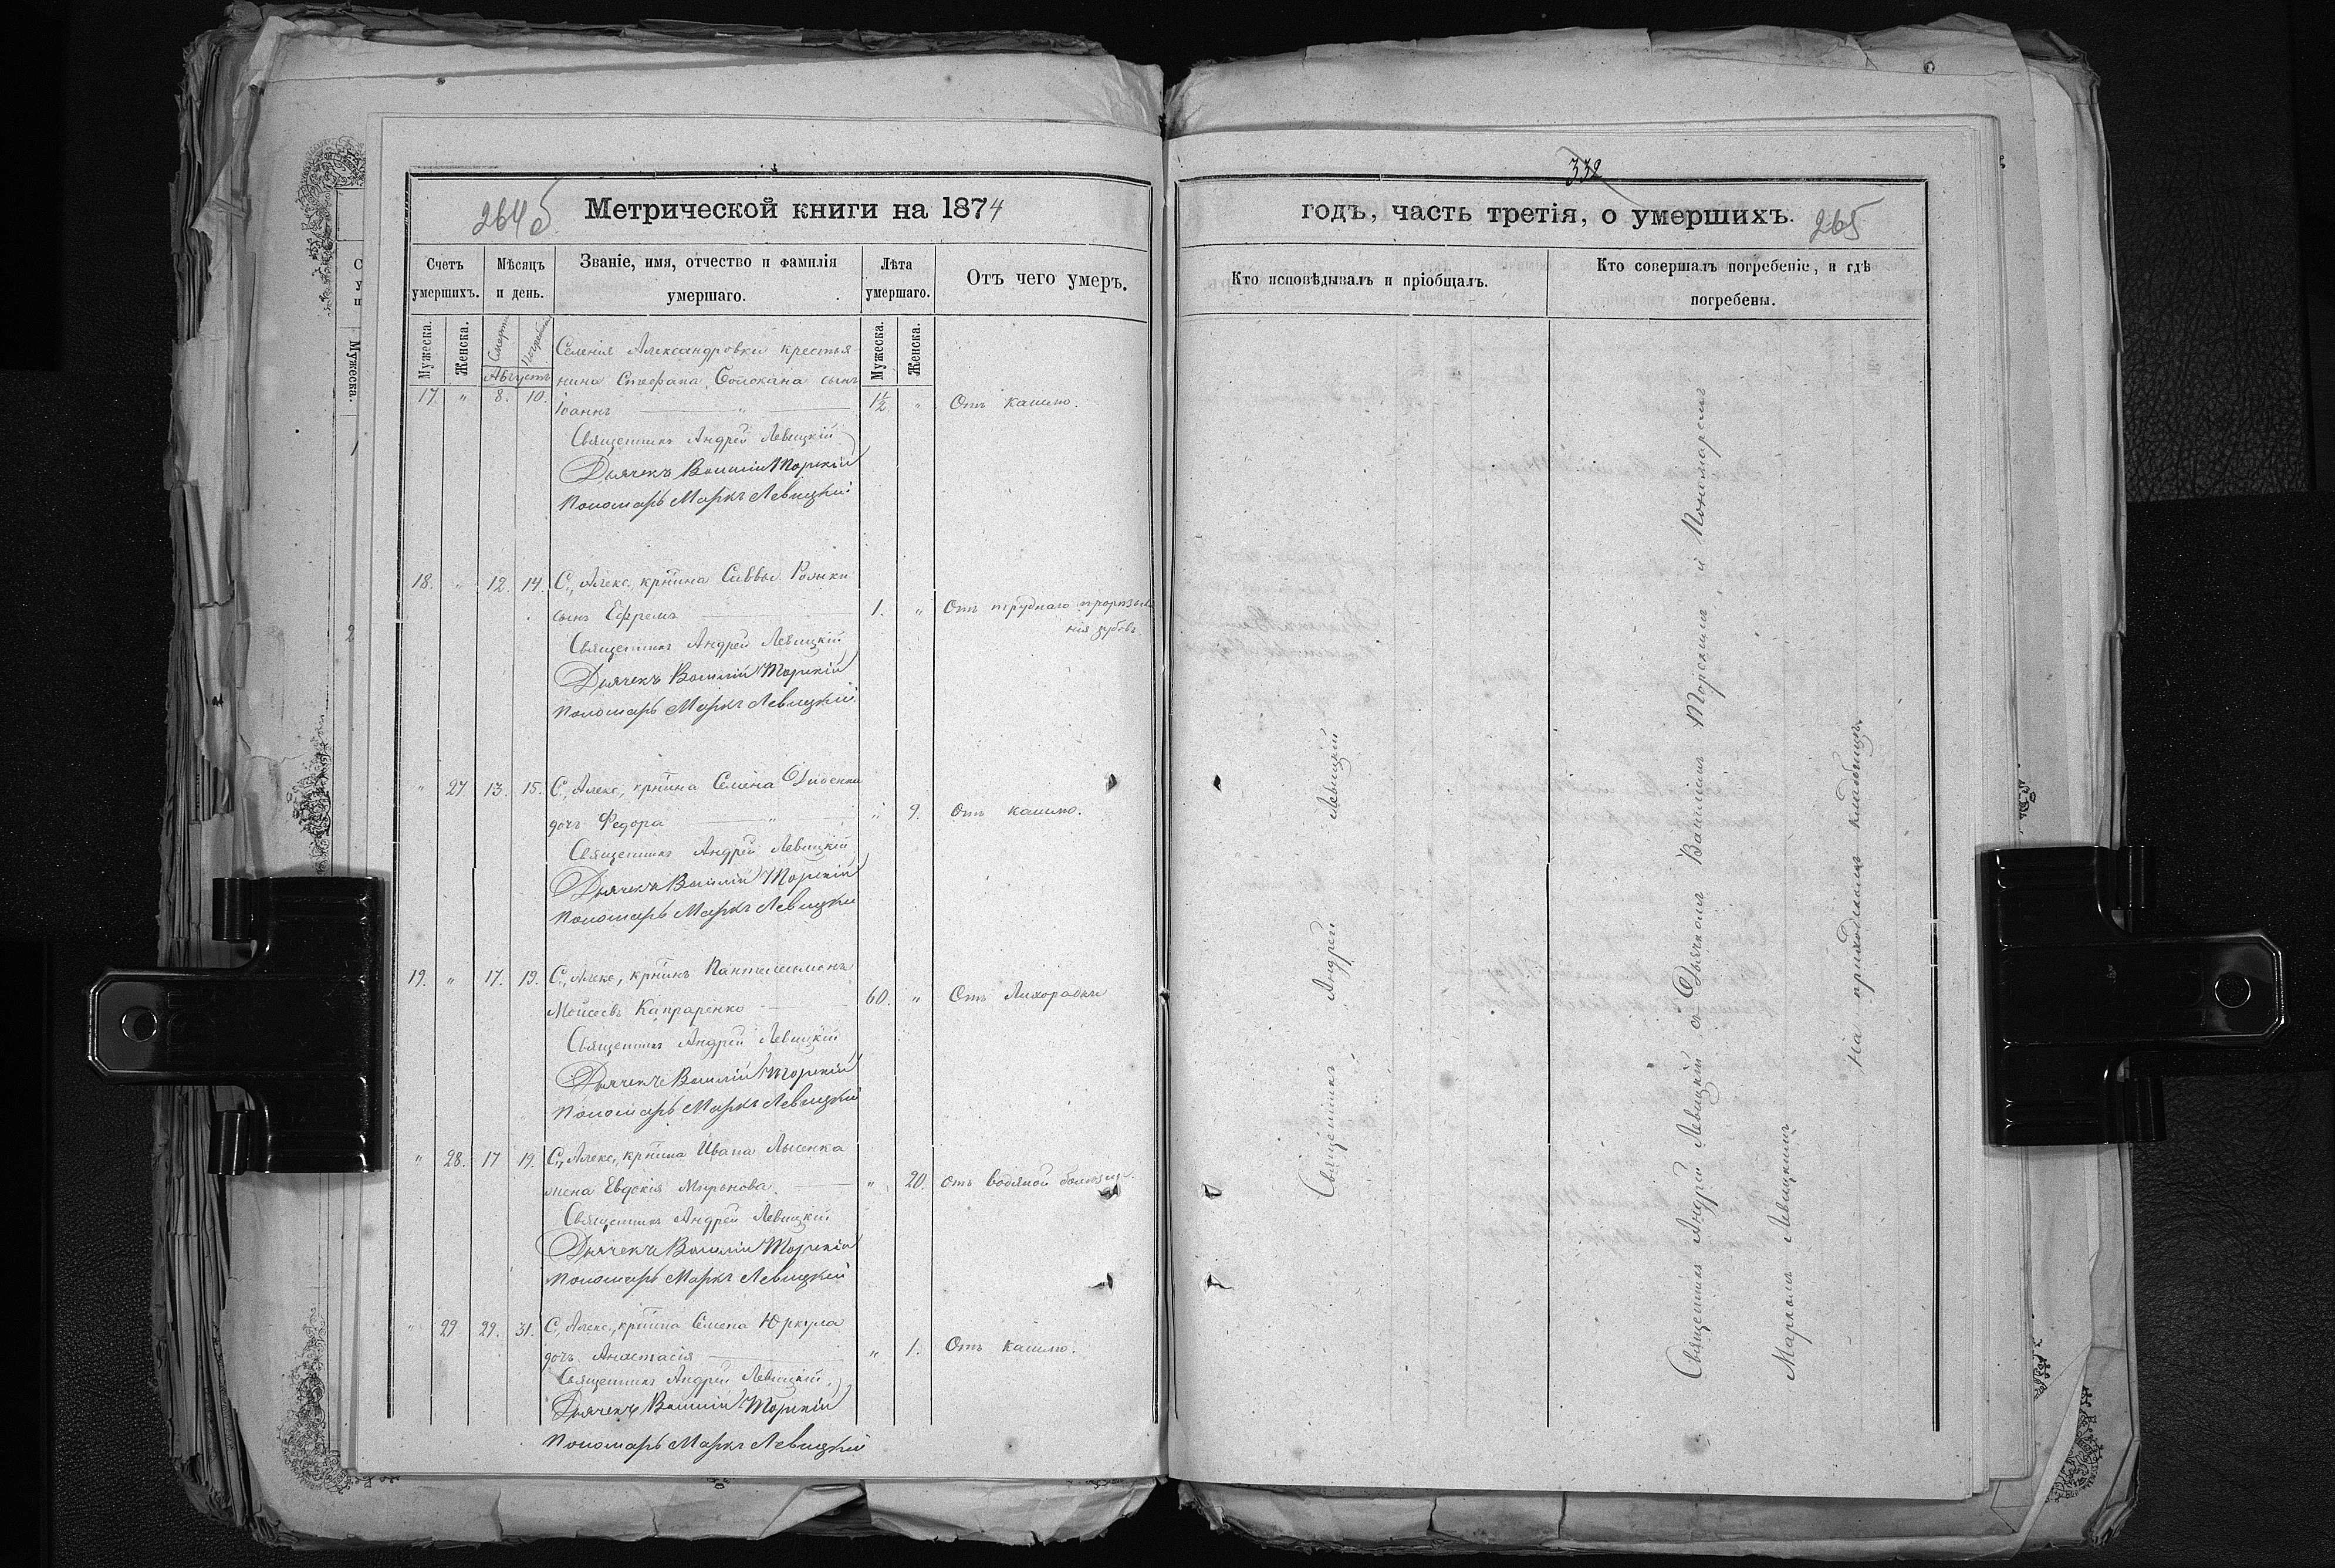 264б
Метрической книги на 1874
Счетъ умершихъ.
Мѣсяцъ и день.
Званіе, имя, отчество и фамилія умершаго.
Лѣта умершаго.
Отъ чего умеръ.
Мужеска.
Женска.
Смерти
Погребенія
Мужеска.
Женска.
Августъ
Селенія Александровки крестья
нина Стефана сынъ
17. " 8. 10. Іоаннъ " 1½ " Отъ кашлю.
Священникъ Андрей Левицкій
Дьячекъ Василій Торскій
Пономарь Маркъ Левицкій
18. " 12. 14. С., Алекс., крнина Саввы
сынъ Ефремъ 1. " Отъ труднаго прорѣзыва
нія зубовъ.
Священникъ Андрей Левицкій
Дьячекъ Василій Торскій
Пономарь Маркъ Левицкій
" 27. 13. 15. С., Алекс., крнина
дочь Федора " " 9. Отъ кашлю.
Священникъ Андрей Левицкій
Дьячекъ Василій Торскій
Пономарь Маркъ Левицкій
19. " 17. 19. С., Алекс., крнинъ Пантелеимонъ
Мойсеевъ Капраренко 60. " Отъ Лихорадки
Священникъ Андрей Левицкій
Дьячекъ Василій Торскій
Пономарь Маркъ Левицкій
" 28. 17 19. С., Алекс., крнина Ивана Лысенка
жена Евдокія Миронова. " 20. Отъ водяной болезни.
Священникъ Андрей Левицкій
Дьячекъ Василій Торскій
Пономарь Маркъ Левицкій
" 29 29. 31. С., Алекс., крнина Семена Юркула
дочь Анастасія " 1. Отъ кашлю.
Священникъ Андрей Левицкій
Дьячекъ Василій Торскій
Пономарь Маркъ Левицкій
332
годъ, часть третія, о умершихъ.
265
Кто исповѣдывалъ и пріобщалъ.
Кто совершалъ погребеніе, и гдѣ
погребены.
Священникъ Андрей Левицкій
Священникъ Андрей Левицкій съ Дьячкомъ Василіемъ Торскимъ, и Пономаремъ
Маркомъ Левицкимъ
На приходскомъ кладбищѣ.
Мужеска.